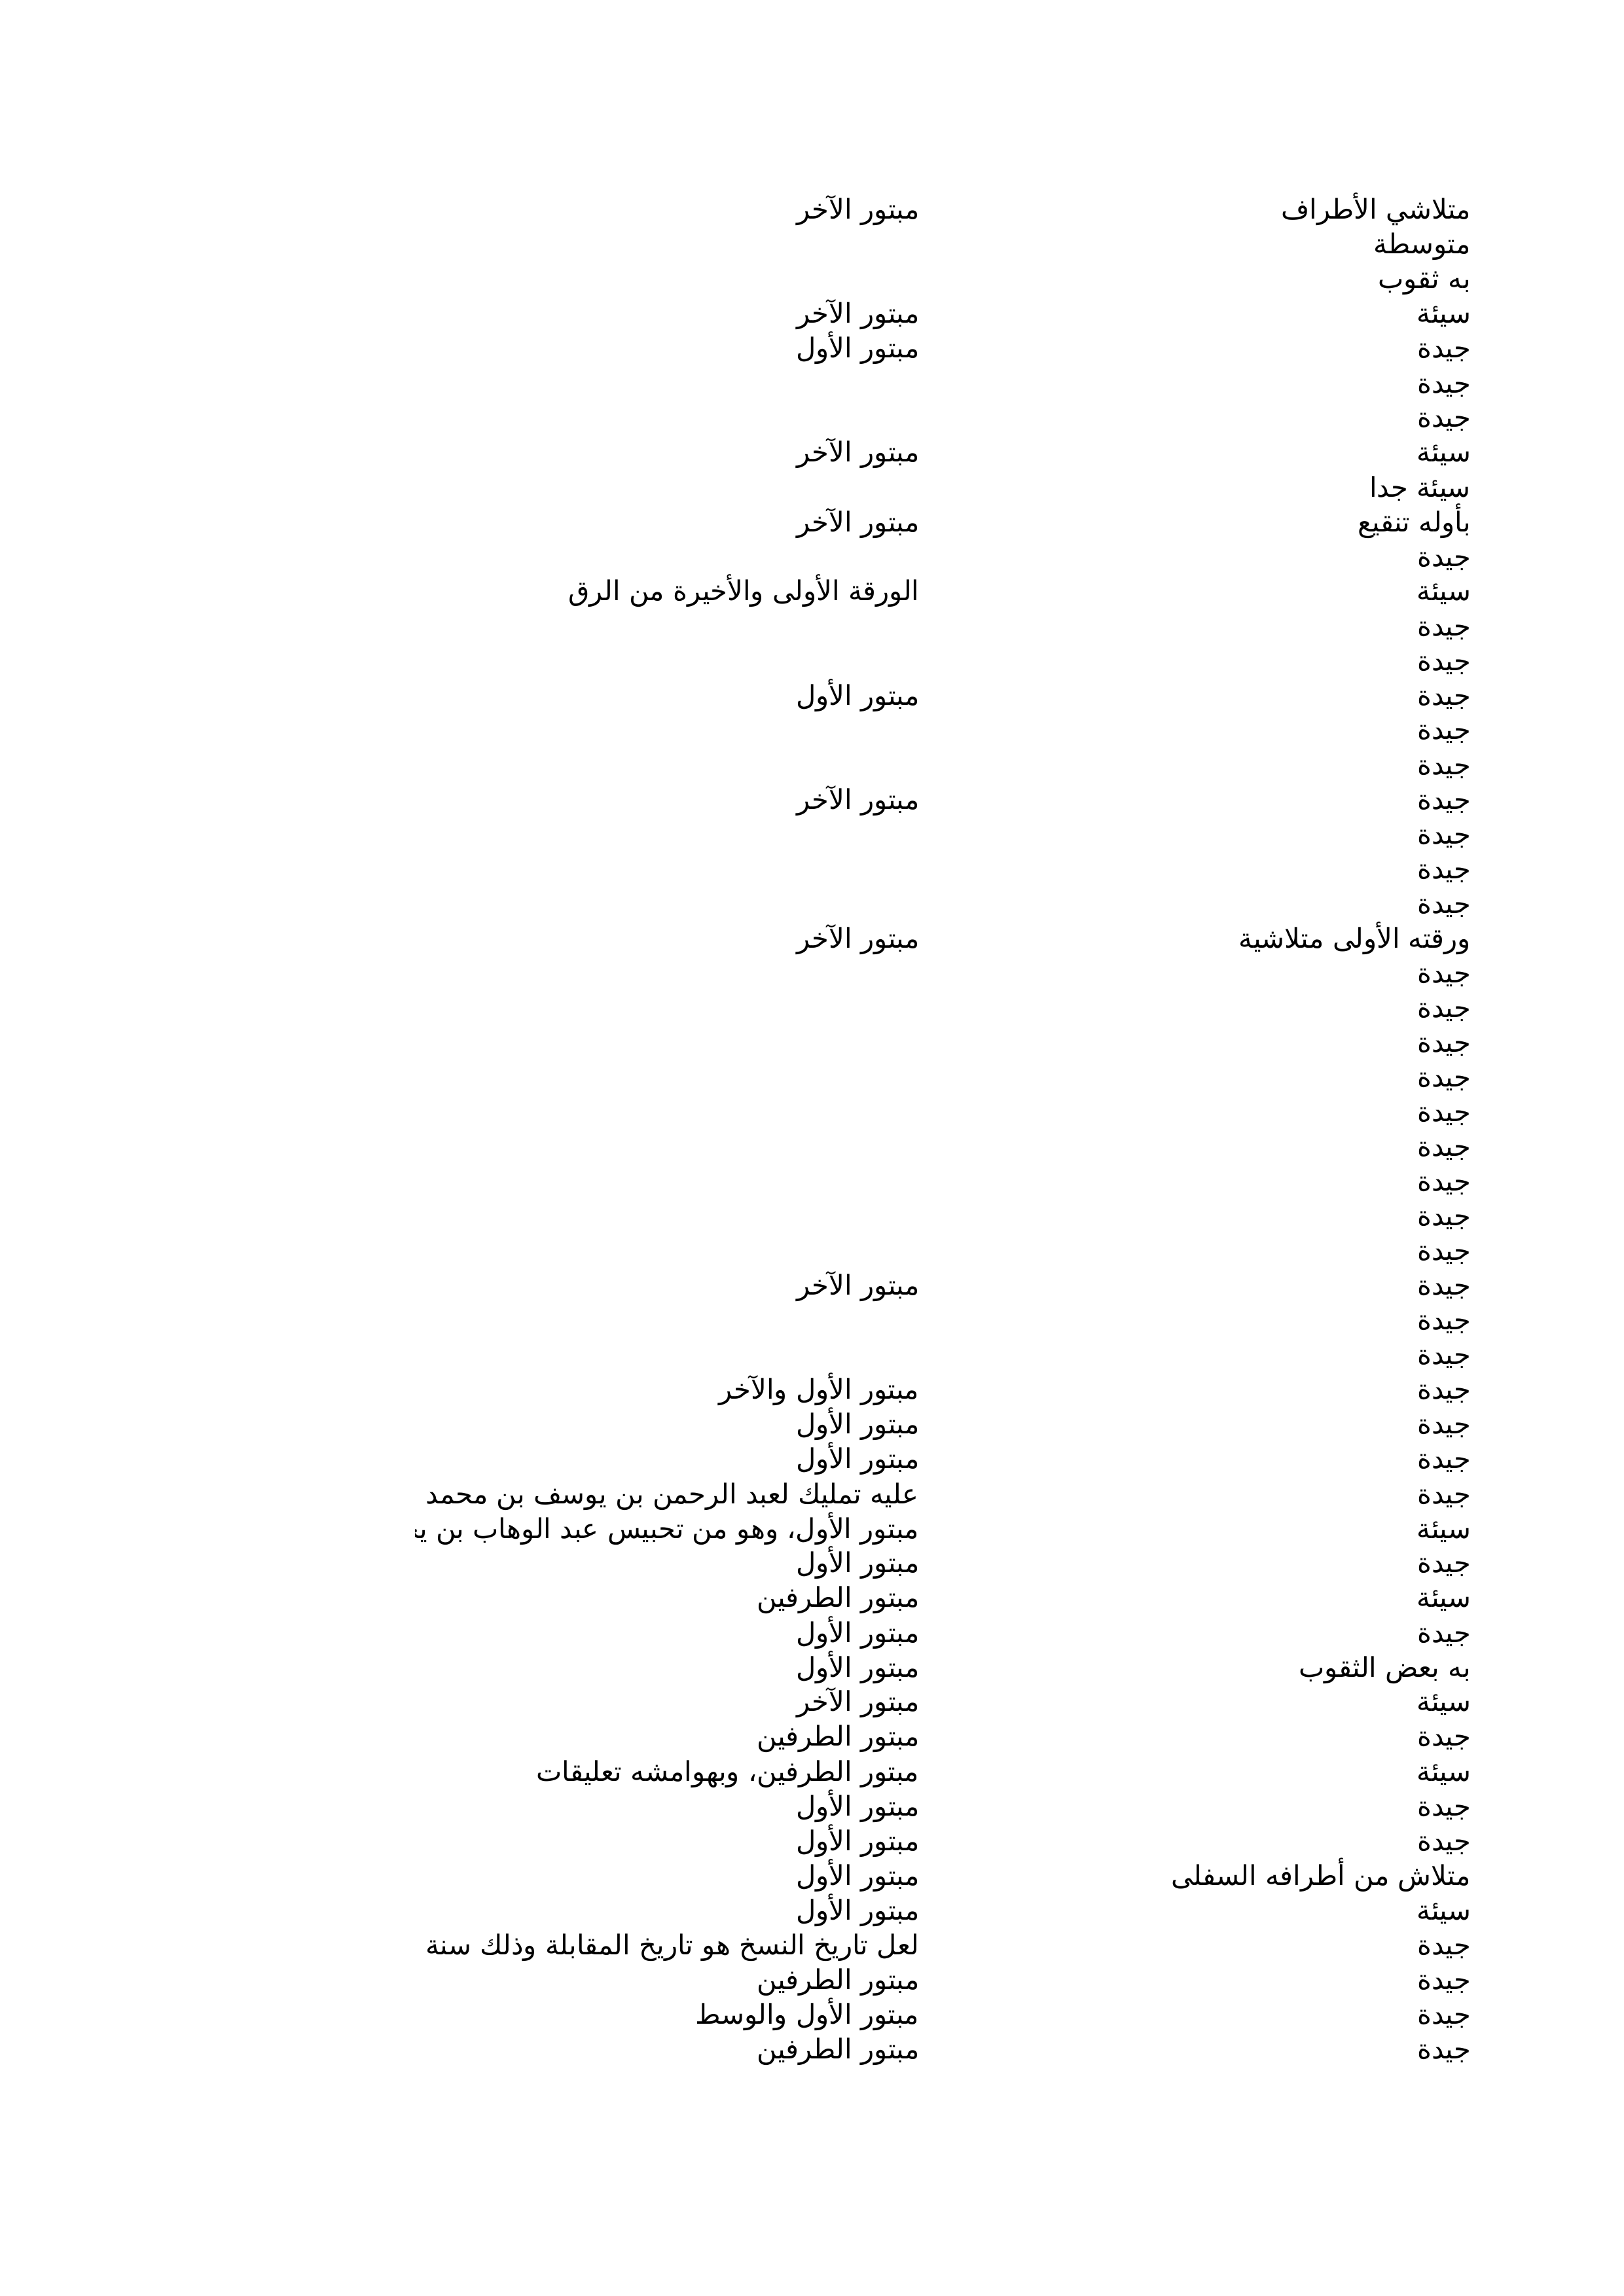 متلاشي الأطراف مبتور الآخر
متوسطة
به ثقوب
سيئة مبتور الآخر
جيدة مبتور الأول
جيدة
جيدة
سيئة مبتور الآخر
سيئة جدا
بأوله تنقيع مبتور الآخر
جيدة
سيئة الورقة الأولى والأخيرة من الرق
جيدة
جيدة
جيدة مبتور الأول
جيدة
جيدة
جيدة مبتور الآخر
جيدة
جيدة
جيدة
ورقته الأولى متلاشية مبتور الآخر
جيدة
جيدة
جيدة
جيدة
جيدة
جيدة
جيدة
جيدة
جيدة
جيدة مبتور الآخر
جيدة
جيدة
جيدة مبتور الأول والآخر
جيدة مبتور الأول
جيدة مبتور الأول
جيدة عليه تمليك لعبد الرحمن بن يوسف بن محمد
سيئة مبتور الأول، وهو من تحبيس عبد الوهاب بن
جيدة مبتور الأول
سيئة مبتور الطرفين
جيدة مبتور الأول
به بعض الثقوب مبتور الأول
سيئة مبتور الآخر
جيدة مبتور الطرفين
سيئة مبتور الطرفين، وبهوامشه تعليقات
جيدة مبتور الأول
جيدة مبتور الأول
متلاش من أطرافه السفلى مبتور الأول
سيئة مبتور الأول
جيدة لعل تاريخ النسخ هو تاريخ المقابلة وذلك سنة
جيدة مبتور الطرفين
جيدة مبتور الأول والوسط
جيدة مبتور الطرفين